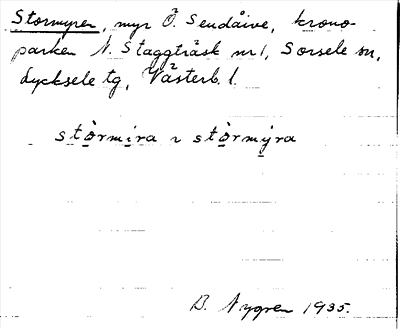 Stormyren, myr Ö. Sendåive, krono-
parken N. Staggträsk nr 1, Sorsele sn,
Lycksele tg, Västerb. l.
stòrmira ~ stòrmýra
D. Nygren 1935.